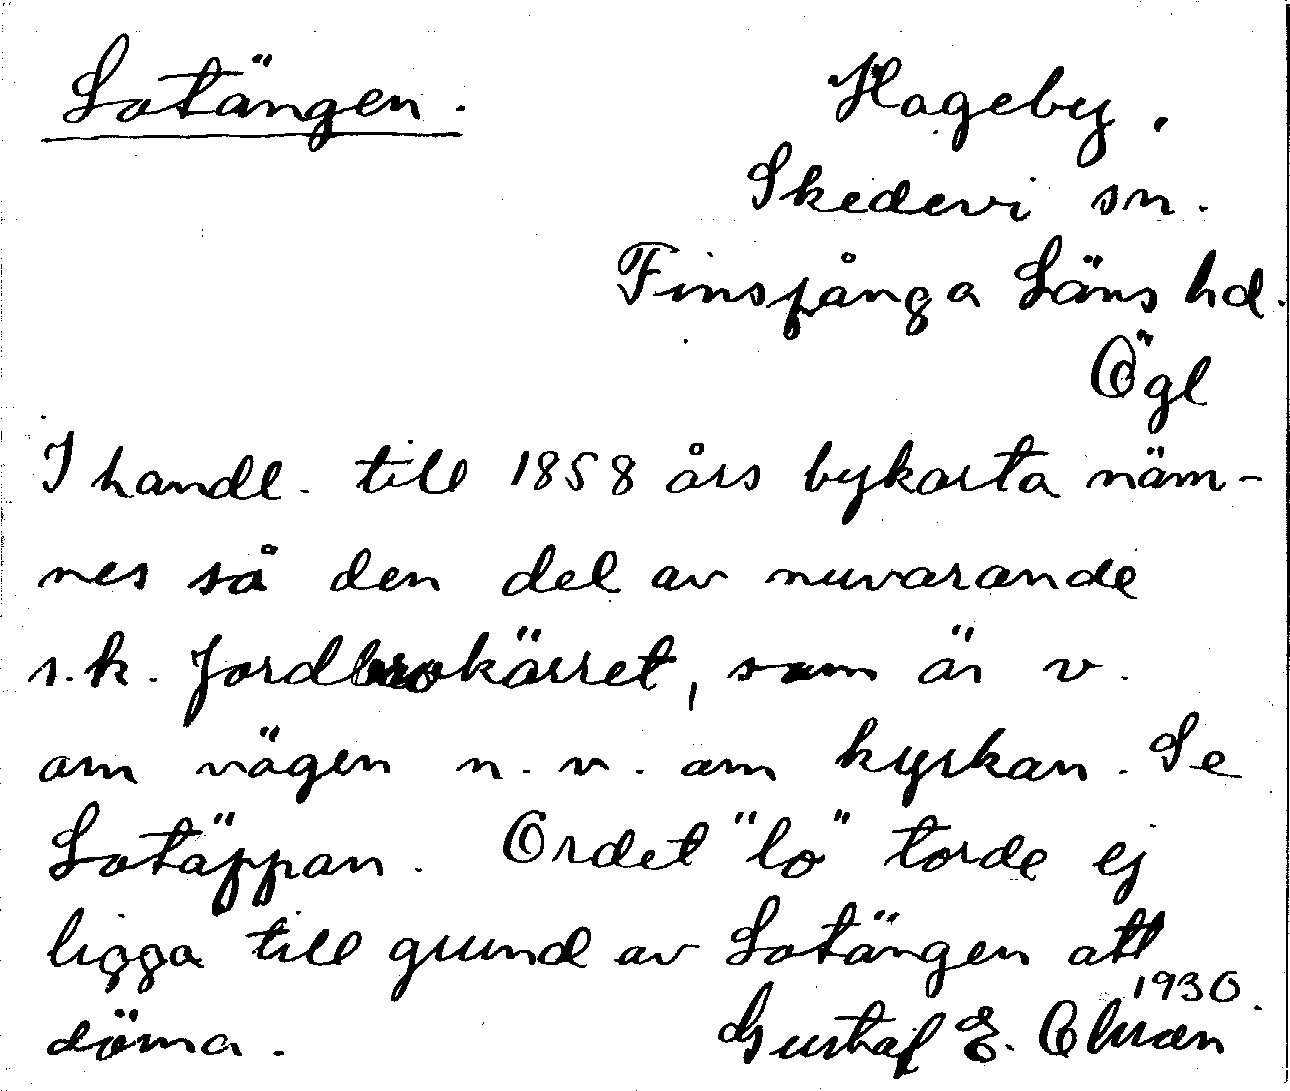 Lotängen.
Hageby,
Skedevi sn.
Finspånga Läns hd.
Ögl
I handl. till 1858 års bykarta näm-
nes så den del av nuvarande
s.k. Jordbrokärret, som är v.
om vägen n.v. om kyrkan. Se
Lotäppan. Ordet "lo" torde ej
ligga till grund av Lotängen att
döma.
1930.
Gustaf E.